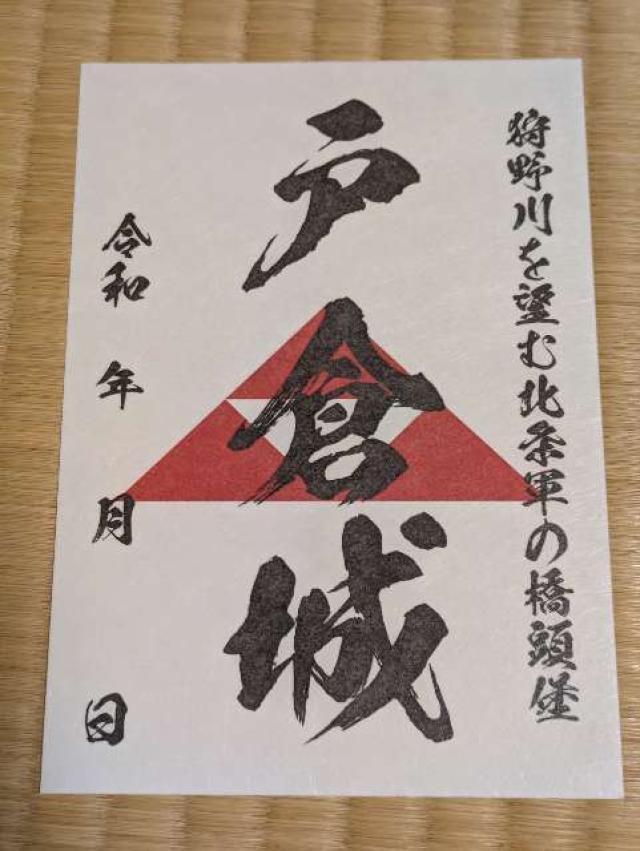 狩野川を望む北条軍の橋頭堡
戸倉城
令和 年 月 日